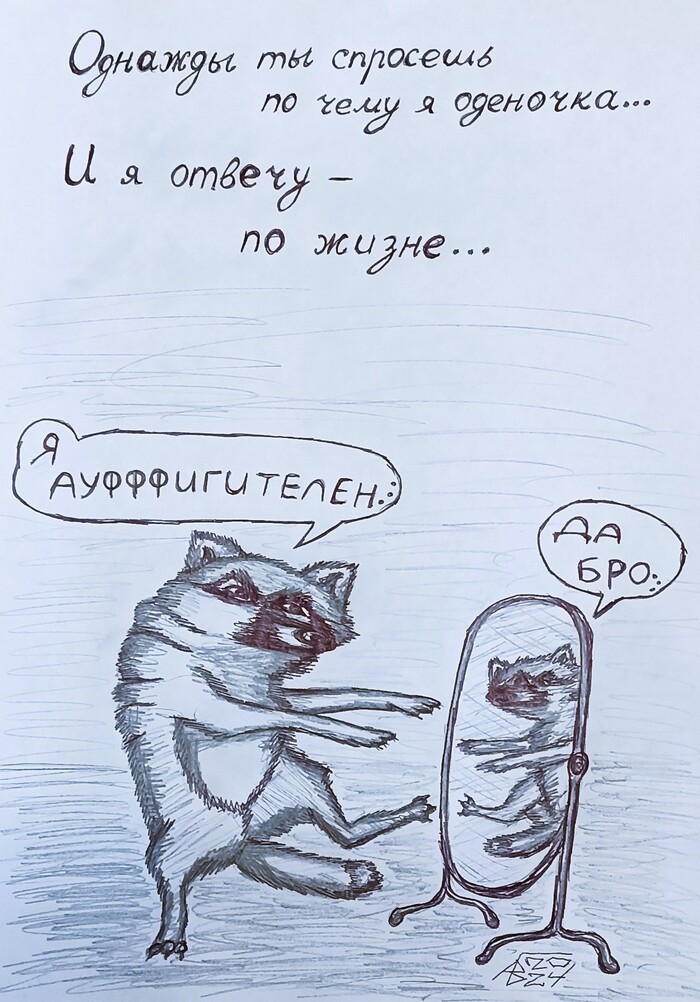 Однажды ты спросешь
по чему я оденочка...
И я отвечу –
по жизне...
Я
АУФФФИГИТЕЛЕН...
ДА
БРО..
АВ 20
24